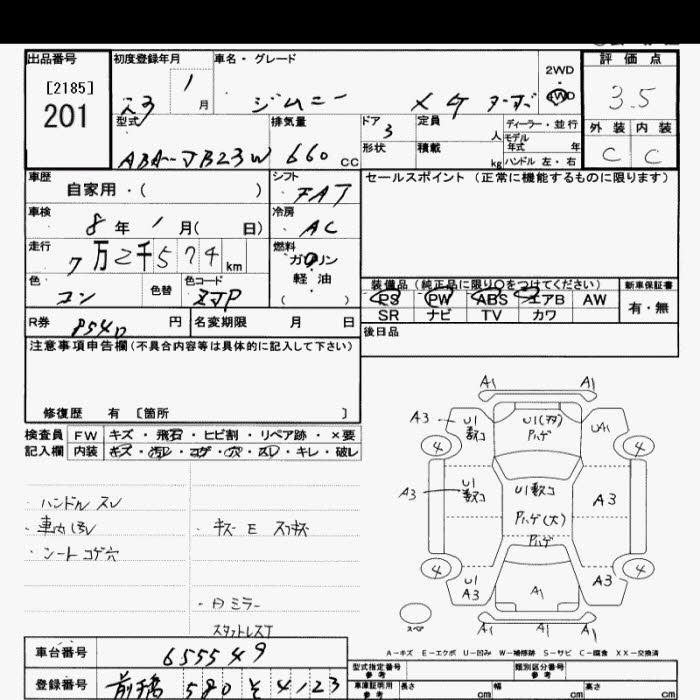 出品番号 初度登録年月 車名・グレード 評価点
[2185] 1 月 2WD
201 ジムニー 4WD 3.5
型式 排気量 ドア 定員 ディーラー・並行 外装 内装
3 人 モデル年式 年
ABA-JB23W 660 CC 形状 積載 kg ハンドル 左・右 C C
車歴 シフト セールスポイント(正常に機能するものに限ります)
自家用・( ) FAT
車検 冷房
8 年 1 月( 日) AC
走行 燃料
7万2千574 km ガソリン
色 色替 色コード 軽油 装備品(純正品に限り○をつけてください) 新車保証書
コン ZJP ( ) PS PW ABS エアB AW 有・無
SR ナビ TV カワ
R券 8540 円 名変期限 月 日 後日品
注意事項申告欄(不具合内容等は具体的に記入して下さい)
修復歴 有 〔箇所 〕
検査員 FW キズ・飛石・ヒビ割・リペア跡・×要
記入欄 内装 キズ・汚レ・コゲ・穴・スレ・キレ・破レ
・ハンドル スレ
・車内汚レ
・シート コゲ穴
・キズ E
ミラー
A1 A1
A3 U1 数コ U1 Pハゲ UA1
4 4
A3 U1 数コ U1 数コ A3
Pハゲ(大)
Pハゲ
4 4
U1 A3 A1 A3
スペア A1 A1 A1
A-キズ E-エクボ U-凹み W-補修跡 S-サビ C-腐食 XX-交換済
車台番号 655549
型式指定番号 参考 類別区分番号 参考
登録番号 前橋 580 そ 4123
車庫証明用 参考 長さ cm 幅 cm 高さ cm